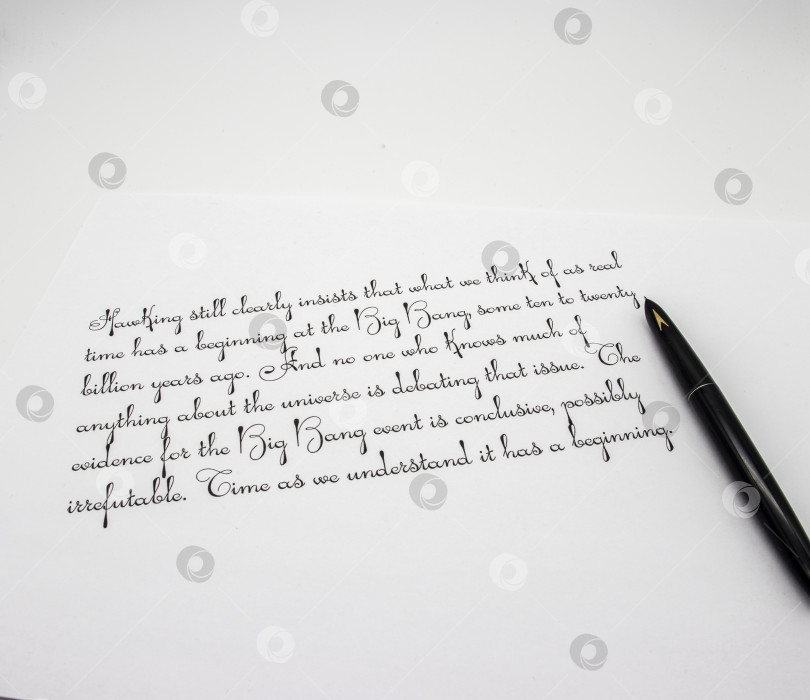 Hawking still clearly insists that what we think of as real
time has a beginning at the Big Bang, some ten to twenty
billion years ago. And no one who knows much of
anything about the universe is debating that issue. The
evidence for the Big Bang event is conclusive, possibly
irrefutable. Time as we understand it has a beginning.